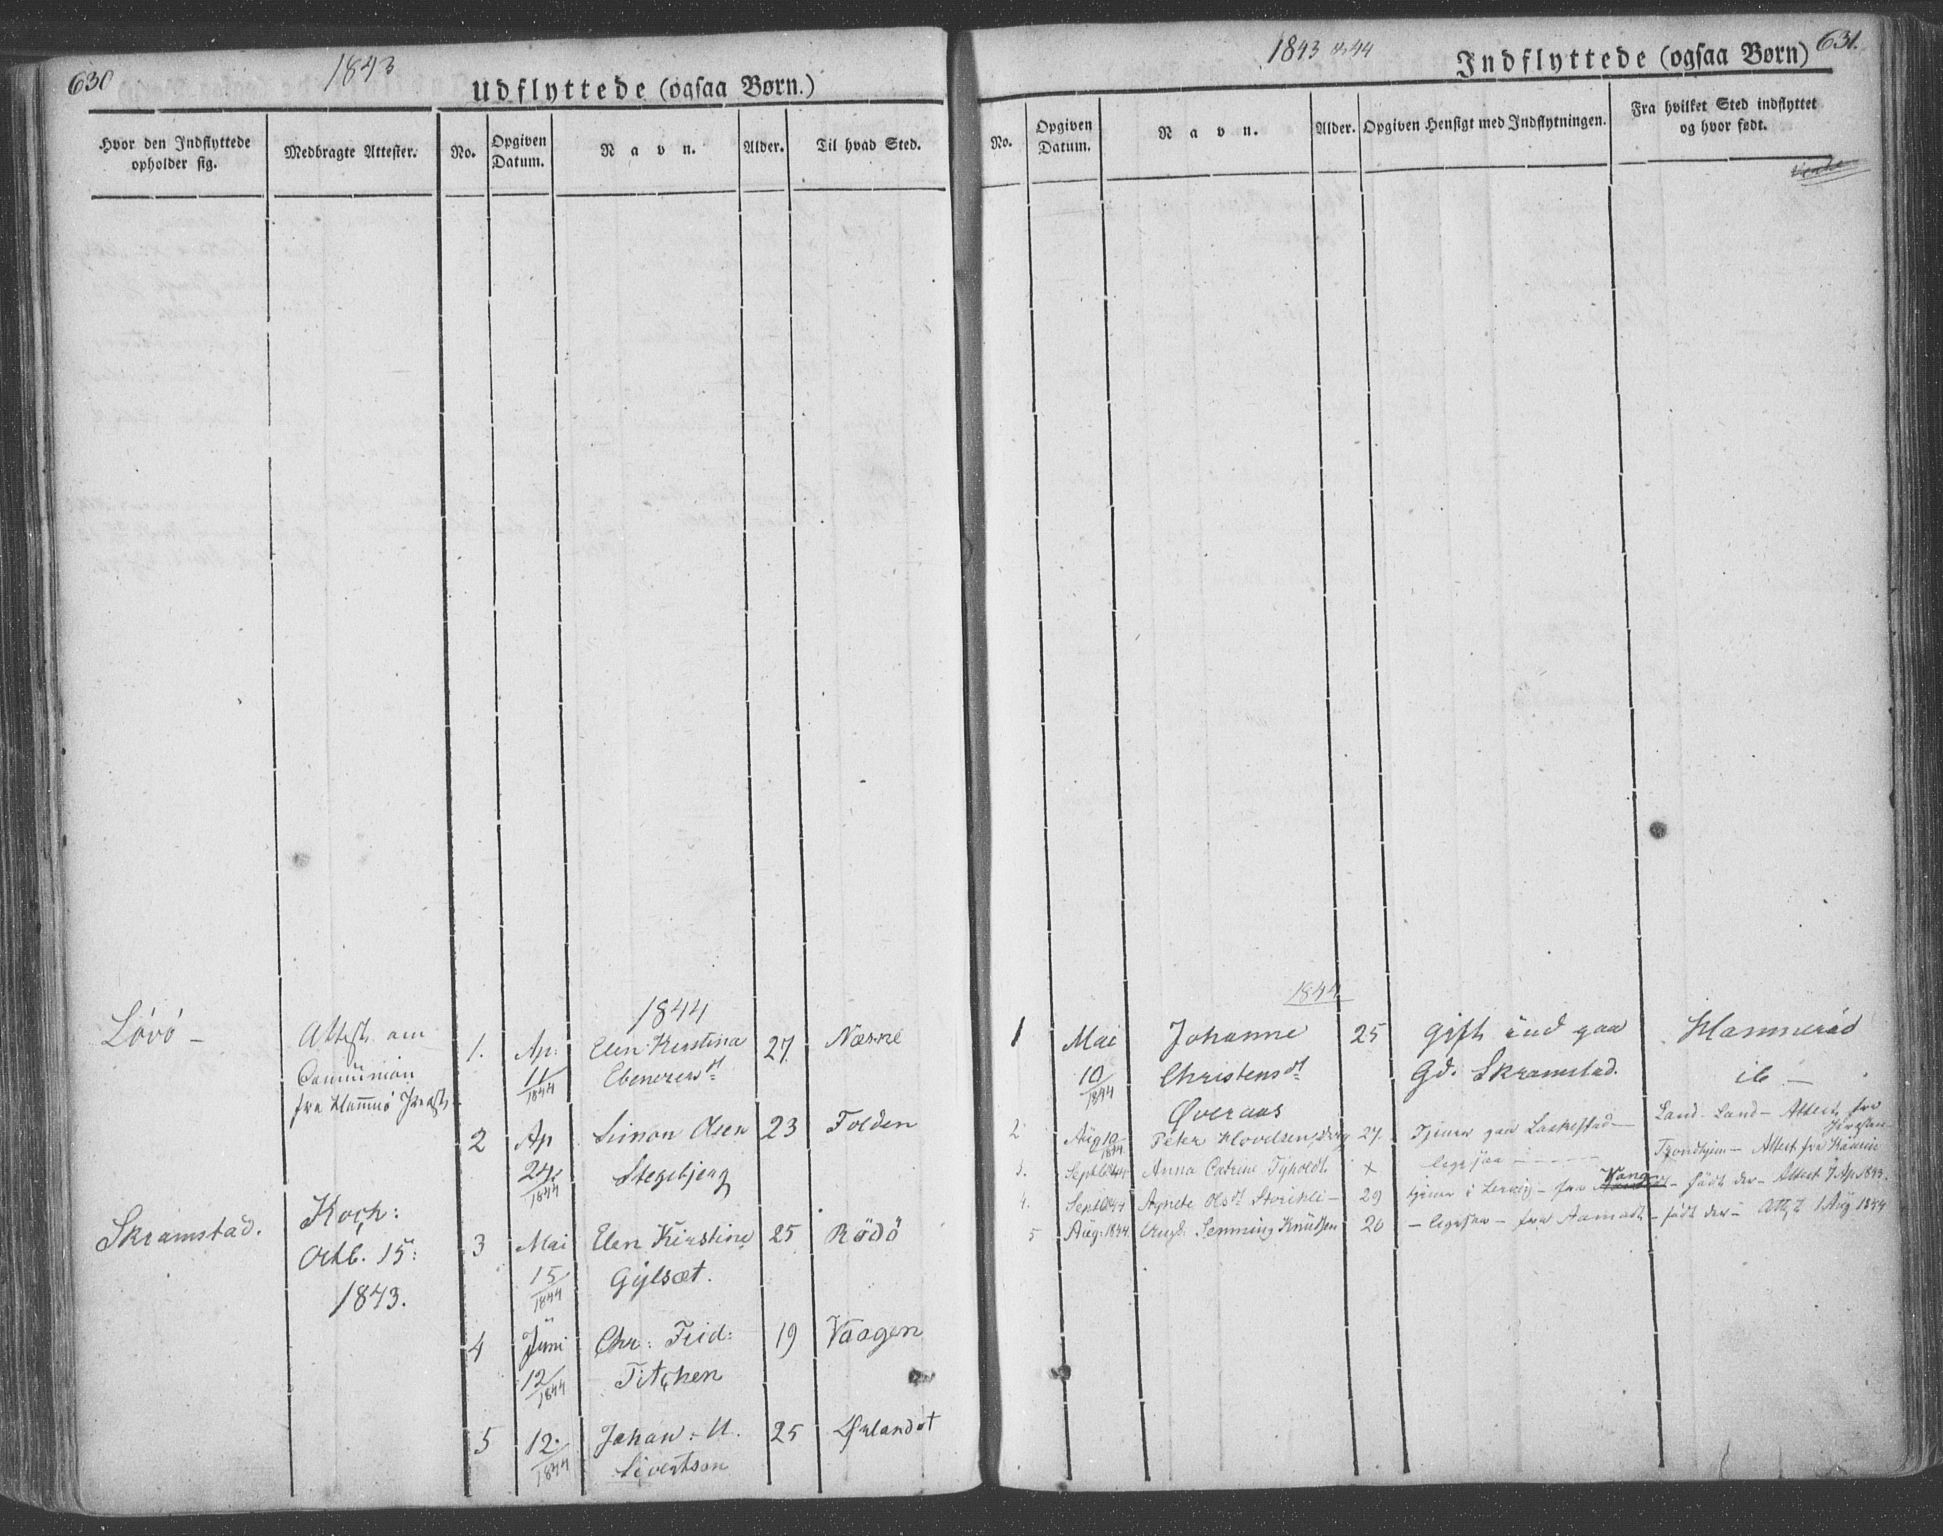 630
1843
Udflyttede (ogsaa Børn.)
Hvor den Indflyttede opholder sig.
Medbragte Attester.
No.
Opgiven Datum.
Navn.
Alder.
Til hvad Sted.
1844
Lövö –
Attest om
Communion
fra
1. Ap. Elen Kirstina 27 Næsne
11/1844 Ebenezersdt
2 Ap Simon Olsen 23 Folden
24/1844 Stegebjerg
Skramstad.
Koch:
Octb. 15:
1843.
3 Mai Elen Kirstine 25 Rödö
15/1844 Gylsæt.
4 Juni Chr: Frid: 19 Vaagen
12/1844
5 12. Johan 25 Ørlandet
1844 Sivertsen
1843 og 44
631.
Indflyttede (ogsaa Børn)
No.
Opgiven Datum.
Navn.
Alder.
Opgiven Hensigt med Indflytningen.
Fra hvilket Sted indflyttet og hvor født.
1844
1 Mai Johanne 25 gift ind paa Hammerød
10/1844 Christensdt Gd. Skramstad. ib –
Øveraas
2 Aug 10 Peter 27. Tjener paa Land. Land – Attest fra
1844
3. Sept 1844 Anna Catrine x ligesaa – Trondhjem – Attest fra
4. Sept 1844 Agnete Olsdt 29 tjener i – fra Vang – født der – Attest 7 Ap. 1843.
5 Aug. 1844 Knudsen 20 – ligesaa – fra Aamodt – født der – Att. 1 Aug 1844